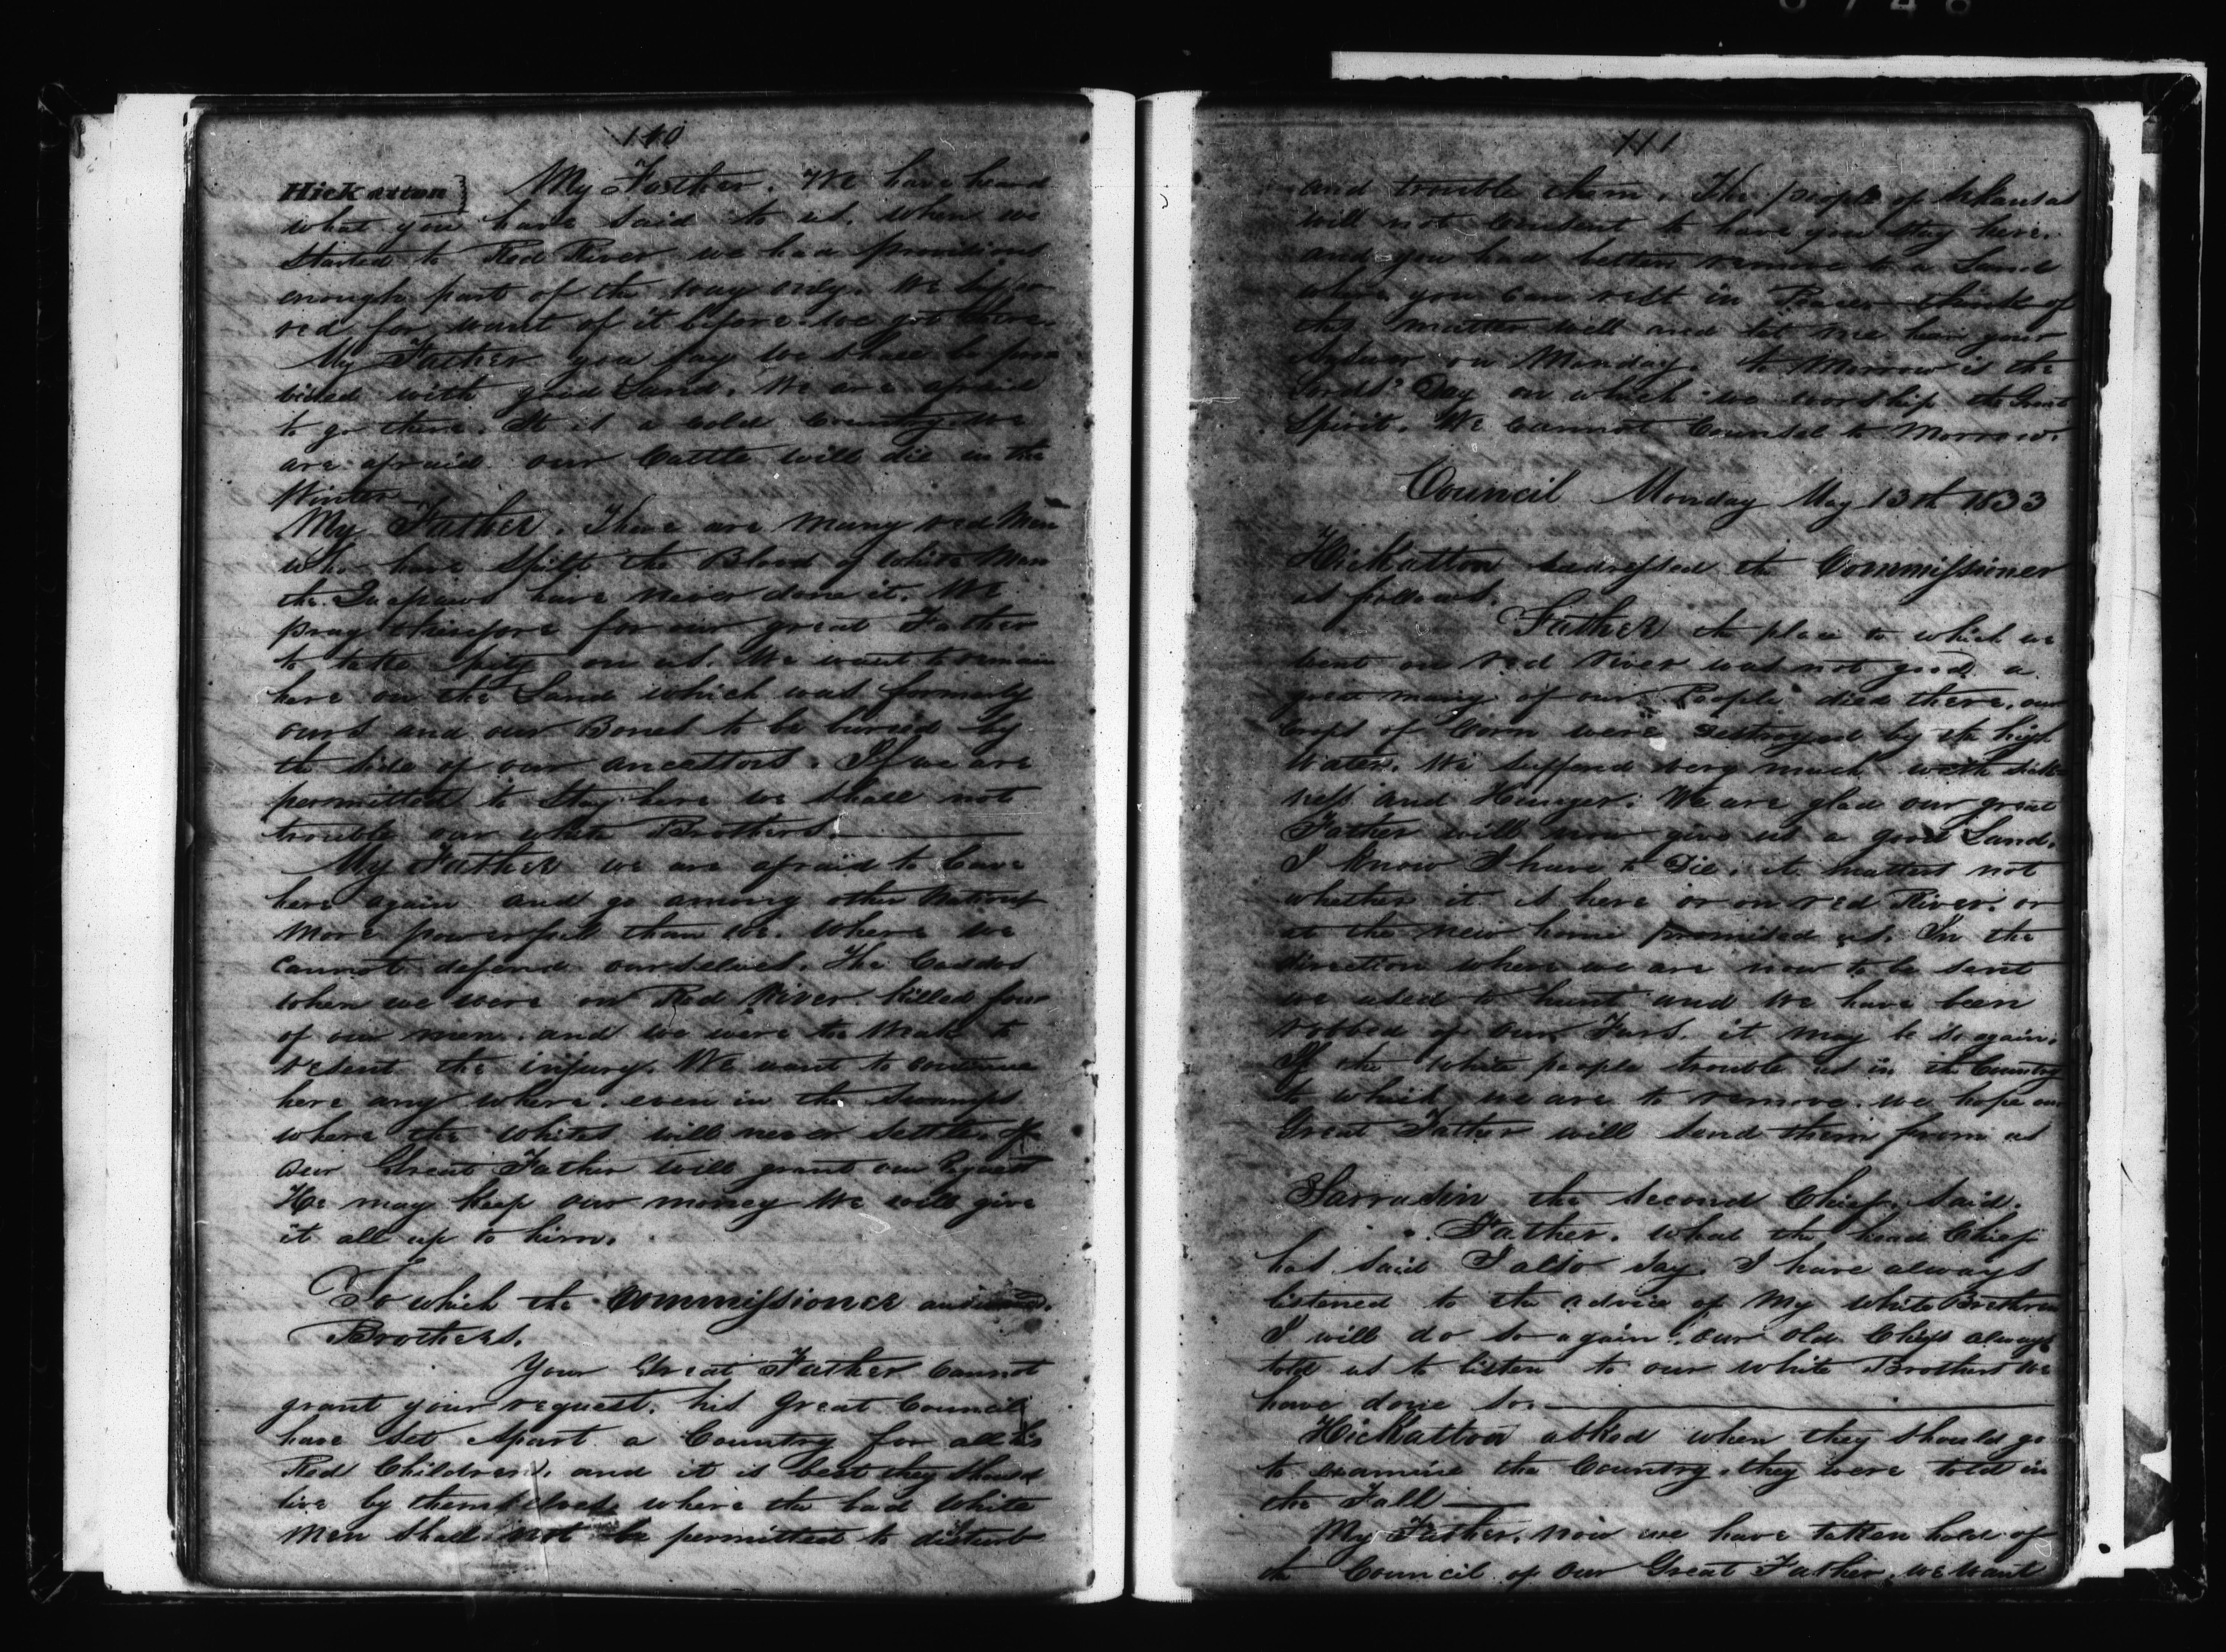 110
Hickatton } My Father. We have heard
what you have said to us. when we
started to Red River, we had provisions
enough part of the way only. We suffe-
red for want of it before we got there.
My Father you say we shall be pro-
vided with good Land. We are afraid
to go there. It is a cold Country we
are afraid our Cattle will die in the
Winter.
My Father. There are many red Men
who have spilt the Blood of White Men
the Quapaws have never done it. We
pray therefore for our great Father
to take pity on us. We want to remain
here on the Land which was formerly
ours and our Bones to be buried by
the side of our ancestors. If we are
permitted to stay here we shall not
trouble our white Brothers.
My Father we are afraid to leave
here again and go among other Nations
More powerful than we. Where we
Cannot defend ourselves. The Caddos
when we were on Red River killed four
of our men. and we were too Weak to
resent the injury. We want to continue
here any where. even in the Swamps
where the whites will never settle. if
our Great Father will grant our Request
He may keep our money We will give
it all up to him.
To which the Commissioner answered.
Brothers.
Your Great Father Cannot
grant your request. his Great Council
have set Apart a Country for all his
Red Children. and it is best they should
live by themselves where the bad White
Men shall not be permitted to disturb
111
and trouble them. The people of Arkansas
will not Consent to have you stay here.
and you had better remove to a Land
where you can rest in Peace think of
this matter well and let me hear your
Answer on Monday. to Morrow is the
Lords Day on which we worship the Great
Spirit. We Cannot Counsel to Morrow.
Council Monday May 13th 1833
Hickatton addressed the Commissioner
as follows.
Father the place to which we
went on red River was not good a
great many of our People died there. our
Crops of Corn were destroyed by the high
Water. We suffered very much with sick-
ness and Hunger. We are glad our great
Father will now give us a good Land.
I know I have to Die. it matters not
whether it is here or on red River. or
at the new home promised us. In the
direction where we are now to be sent
we used to hunt and We have been
robbed of our Furs. it may be so again.
If the White people trouble us in the Country
to which we are to remove. we hope our
Great Father will send them from us
Sarrasin the Second Chief. said.
Father. what the head Chief
has said I also say. I have always
listened to the advice of My White Brethren
I will do so again. our old Chiefs always
told us to listen to our White Brothers We
have done so.
Hickatton asked when they should go
to examine the Country. they were told in
the Fall
My Father. now we have taken hold of
the Council of our Great Father, we want